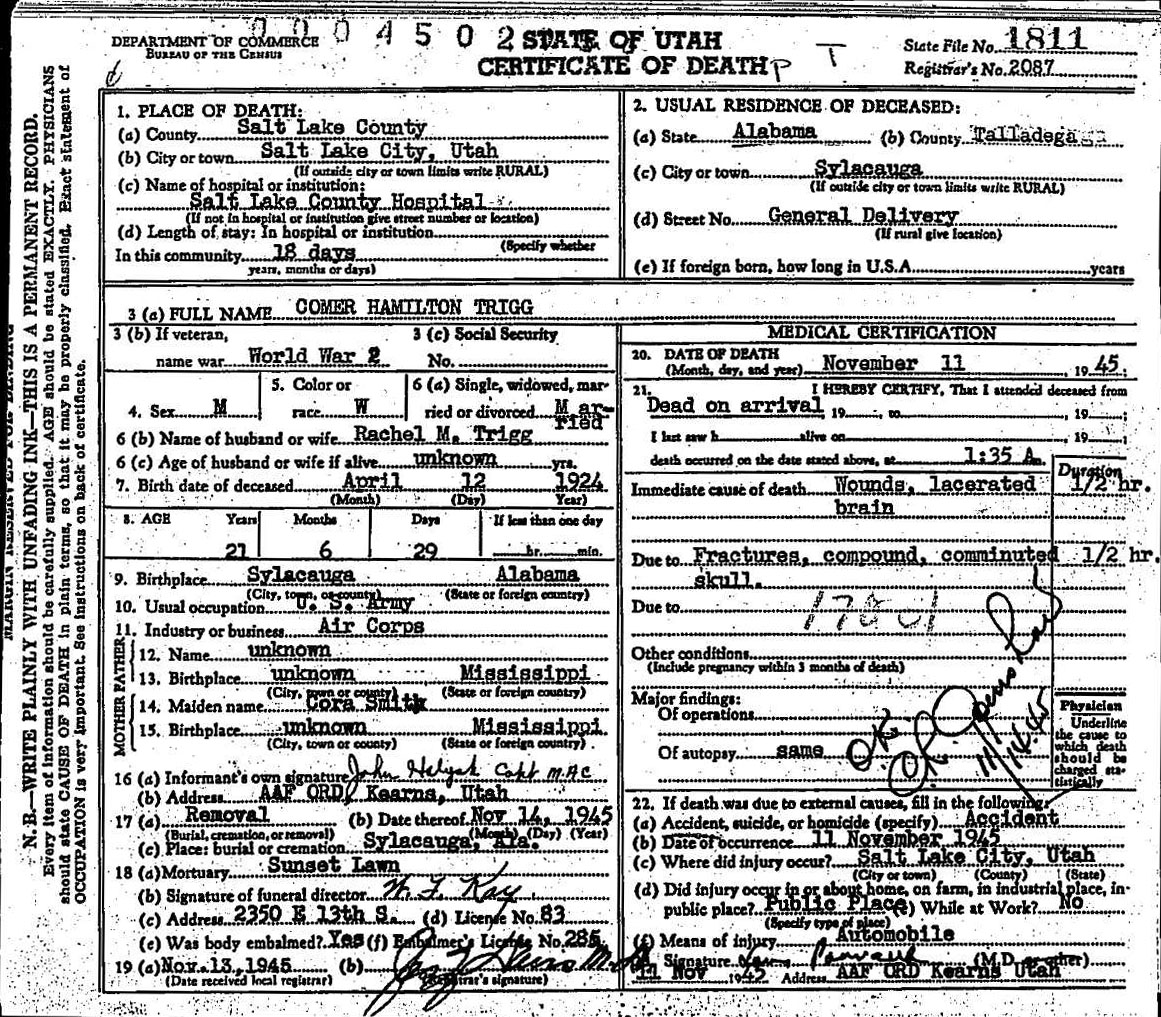 0004502
DEPARTMENT OF COMMERCE
BUREAU OF THE CENSUS
STATE OF UTAH
CERTIFICATE OF DEATH
P T
State File No. 1811
Registrar's No. 2087
N. B.—WRITE PLAINLY WITH UNFADING INK—THIS IS A PERMANENT RECORD.
Every item of information should be carefully supplied. AGE should be stated EXACTLY. PHYSICIANS
should state CAUSE OF DEATH in plain terms, so that it may be properly classified. Exact statement of
OCCUPATION is very important. See instructions on back of certificate.
1. PLACE OF DEATH:
(a) County Salt Lake County
(b) City or town Salt Lake City, Utah
(If outside city or town limits write RURAL)
(c) Name of hospital or institution:
Salt Lake County Hospital
(If not in hospital or institution give street number or location)
(d) Length of stay: In hospital or institution
(Specify whether
In this community 18 days
years, months or days)
2. USUAL RESIDENCE OF DECEASED:
(a) State Alabama (b) County Talladega
(c) City or town Sylacauga
(If outside city or town limits write RURAL)
(d) Street No. General Delivery
(If rural give location)
(e) If foreign born, how long in U.S.A. years
3 (a) FULL NAME COMER HAMILTON TRIGG
3 (b) If veteran,
name war World War 2
3 (c) Social Security
No.
4. Sex M
5. Color or
race W
6 (a) Single, widowed, mar-
ried or divorced Mar-
ried
6 (b) Name of husband or wife Rachel M. Trigg
6 (c) Age of husband or wife if alive unknown yrs.
7. Birth date of deceased April 12 1924
(Month) (Day) Year)
8. AGE Years Months Days If less than one day
21 6 29 hr. min.
9. Birthplace Sylacauga Alabama
(City, town, or county) (State or foreign country)
10. Usual occupation U. S. Army
11. Industry or business Air Corps
FATHER
12. Name unknown
13. Birthplace unknown Mississippi
(City, town or county) (State or foreign country)
MOTHER
14. Maiden name Cora Smith
15. Birthplace unknown Mississippi
(City, town or county) (State or foreign country)
16 (a) Informant's own signature John Capt MAC
(b) Address AAF ORD, Kearns, Utah
17 (a) Removal (b) Date thereof Nov 14, 1945
(Burial, cremation, or removal) (Month) (Day) (Year)
(c) Place: burial or cremation Sylacauga, Ala.
18 (a) Mortuary Sunset Lawn
(b) Signature of funeral director W. F. Kay
(c) Address 2350 E 13th S. (d) License No. 83
(e) Was body embalmed? Yes (f) Embalmer's License No. 285
19 (a) Nov. 13, 1945 (b)
(Date received local registrar) (Registrar's signature)
MEDICAL CERTIFICATION
20. DATE OF DEATH
(Month, day, and year) November 11, 1945
21. I HEREBY CERTIFY, That I attended deceased from
Dead on arrival, 19 , to , 19 ;
I last saw h alive on , 19 ;
death occurred on the date stated above, at 1:35 A m.
Duration
Immediate cause of death Wounds, lacerated 1/2 hr.
brain
Due to Fractures, compound, comminuted 1/2 hr.
skull.
Due to
Other conditions
(Include pregnancy within 3 months of death)
Major findings:
Of operations
Of autopsy same
O.K.
O.K.
11/14.45
Physician
Underline
the cause to
which death
should be
charged sta-
tistically
22. If death was due to external causes, fill in the following:
(a) Accident, suicide, or homicide (specify) Accident
(b) Date of occurrence 11 November 1945
(c) Where did injury occur? Salt Lake City, Utah
(City or town) (County) (State)
(d) Did injury occur in or about home, on farm, in industrial place, in-
public place? Public Place (e) While at Work? No
(Specify type of place)
(f) Means of injury Automobile
Signature (M.D. or other)
11 Nov 1945 Address AAF ORD Kearns Utah